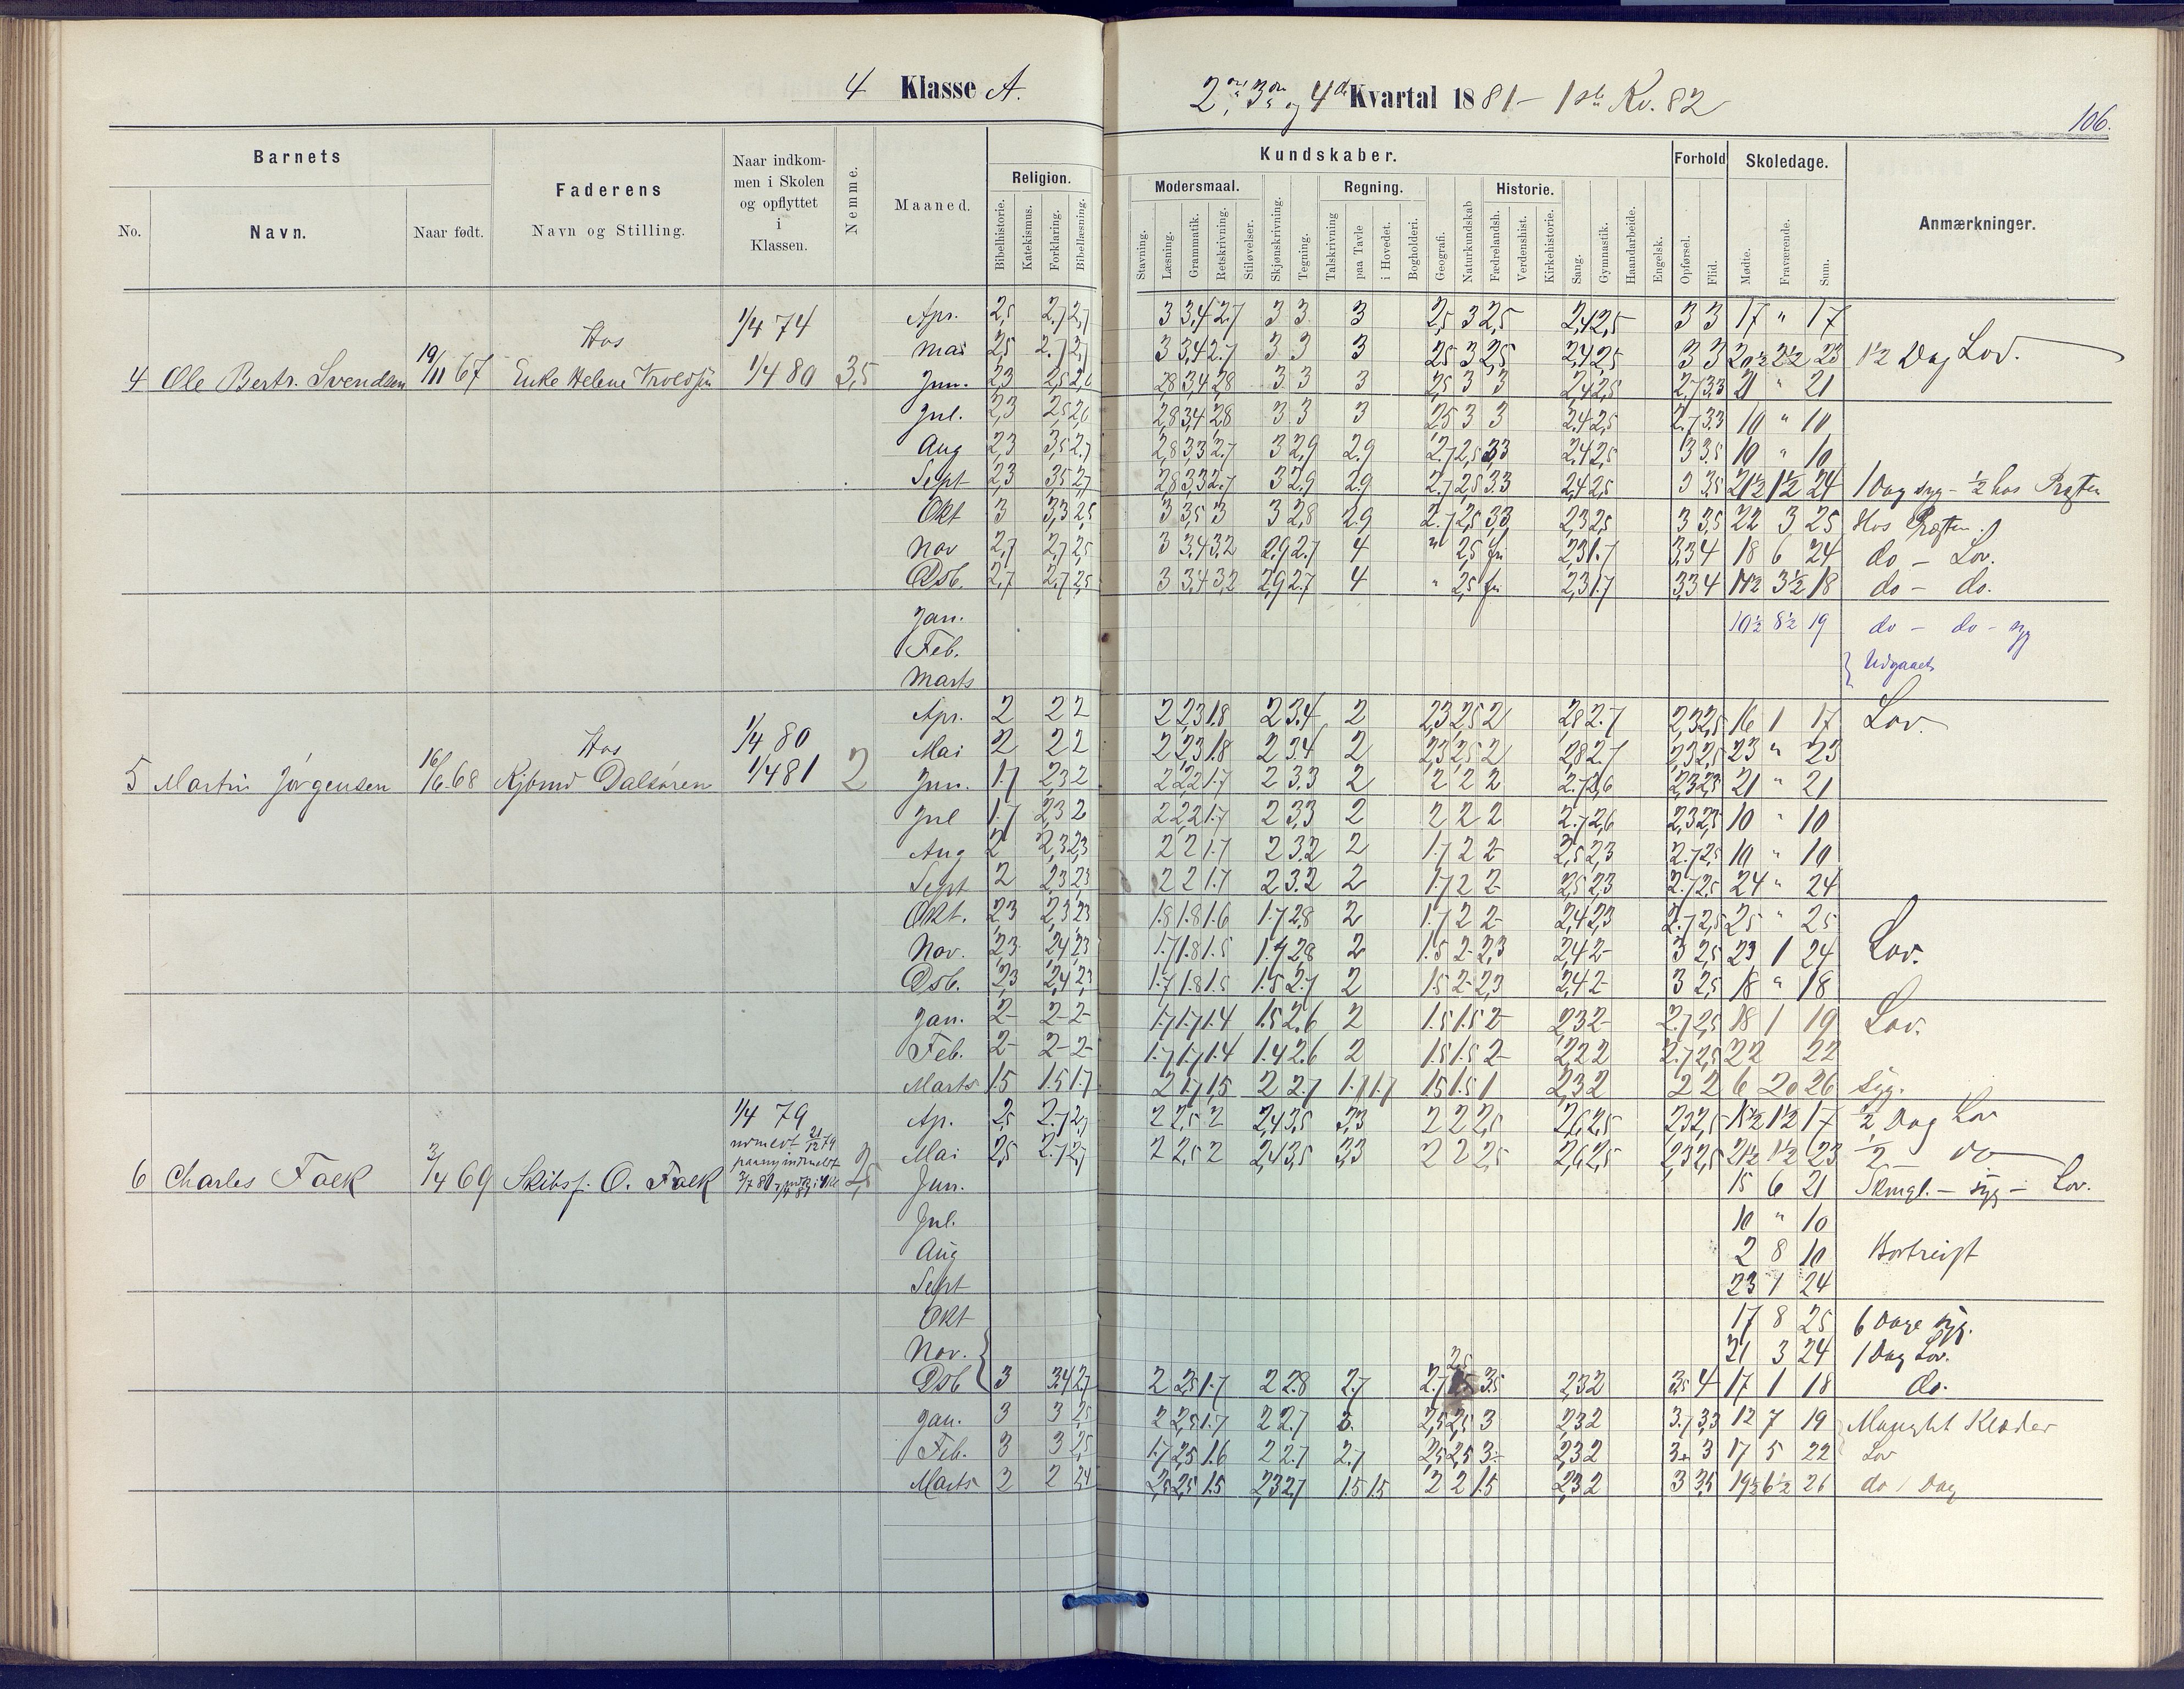 4 Klasse A.
2den, 3die og 4de Kvartal 1881 - 1ste Kv. 82
106.
Barnets
No.
Navn.
Naar født.
Faderens
Navn og Stilling.
Naar indkom-
men i Skolen
og opflyttet
i
Klassen.
Nemme.
Maaned.
Religion.
Bibelhistorie.
Katekismus.
Forklaring.
Bibellæsning.
Kundskaber.
Modersmaal.
Stavning.
Læsning.
Grammatik.
Retskrivning.
Stiløvelser.
Skjønskrivning.
Tegning.
Regning.
Talskrivning
paa Tavle
i Hovedet.
Bogholderi.
Geografi.
Naturkundskab
Historie.
Fædrelandsh.
Verdenshist.
Kirkehistorie.
Sang.
Gymnastik.
Haandarbeide.
Engelsk.
Forhold
Opførsel.
Flid.
Skoledage.
Mødte.
Fraværende.
Sum.
Anmærkninger.
4 Ole Bertr. Svendsen 19/11 67 Hos Enke Helene 1/4 74 1/4 80 3,5
Apr. 2,5 2.7 2,7 3 3,4 2.7 3 3 3 2,5 3 2,5 2,4 2,5 3 3 17 " 17
Mai 2,5 2.7 2,7 3 3,4 2.7 3 3 3 2,5 3 2,5 2,4 2,5 3 3 20½ 2½ 23 1½ Dag Lov.
Jun. 2,3 2,5 2,6 2,8 3,4 2,8 3 3 3 2,5 3 3 2,4 2,5 2,7 3,3 21 " 21
Jul. 2,3 2,5 2,6 2,8 3,4 2,8 3 3 3 2,5 3 3 2,4 2,5 2.7 3.3 10 " 10
Aug 2,3 3,5 2.7 2,8 3,3 2.7 3 2,9 2.9 2.7 2,5 3,3 2,4 2,5 3 3.5 10 " 10
Sept 2,3 3,5 2,7 2,8 3,3 2.7 3 2,9 2.9 2.7 2,5 3.3 2,4 2,5 3 3,5 21½ 1½ 24 1 Dag syg - ½ hos Præsten
Okt 3 3,3 2,5 3 3,5 3 3 2,8 2.9 2.7 2,5 3,3 2,3 2,5 3 3,5 22 3 25 Hos Præsten.
Nov 2,7 2,7 2,5 3 3,4 3,2 2,9 2.7 4 " 2,5 fri 2,3 1.7 3,3 4 18 6 24 do - Lov.
Dsb. 2,7 2.7 2,5 3 3,4 3,2 2,9 2,7 4 " 2,5 fri 2,3 1,7 3,3 4 14½ 3½ 18 do - do.
Jan. 10½ 8½ 19 do - do - syg
Feb.
Marts
Udgaaet
5 Martin Jørgensen 16/6 68 Hos Kjømd Dalsøren 1/4 80 1/4 81 2
Apr. 2 2 2 2 2,3 1.8 2 3.4 2 2,3 2,5 2 2,8 2.7 2,3 2,5 16 1 17 Lov.
Mai 2 2 2 2 2,3 1.8 2 3.4 2 2,3 2,5 2 2,8 2.7 2,3 2,5 23 " 23
Jun. 1.7 2,3 2 2 2,2 1.7 2 3.3 2 2 2 2 2.7 2,6 2,3 2,5 21 " 21
Jul 1.7 2,3 2 2 2,2 1.7 2 3,3 2 2 2 2 2.7 2,6 2,3 2,5 10 " 10
Aug 2 2,3 2,3 2 2 1.7 2 3.2 2 1.7 2 2 2,5 2,3 2.7 2,5 10 " 10
Sept 2 2,3 2,3 2 2 1.7 2 3.2 2 1.7 2 2 2,5 2,3 2.7 2,5 24 " 24
Okt. 2,3 2,3 2,3 1.8 1.8 1.6 1.7 2,8 2 1.7 2 2 2,4 2,3 2.7 2,5 25 " 25
Nov. 2,3 2,4 2,3 1.7 1.8 1.5 1.7 2,8 2 1.5 2 2,3 2,4 2 3 2,5 23 1 24 Lov.
Dsb. 2,3 2,4 2,3 1.7 1.8 1.5 1.5 2.7 2 1.5 2 2,3 2,4 2 3 2,5 18 " 18
Jan. 2 2 2 1.7 1.7 1.4 1.5 2.6 2 1.5 1.5 2 2,3 2 2.7 2,5 18 1 19 Lov.
Feb. 2 2 2 1.7 1.7 1.4 1.4 2.6 2 1.5 1.5 2 2,2 2 2.7 2,5 22 22
Marts 1.5 1.5 1.7 2 1.7 1,5 2 2.7 1.7 1.7 1.5 1.5 1 2,3 2 2 2 6 20 26 Syg.
6 Charles Falk 3/4 69 Skibsf. O. Falk 1/4 79 udmeldt 21/12 79 paany indmeldt 2,5
Ap. 2,5 2.7 2,7 2 2,5 2 2,4 3,5 3,3 2 2 2,5 2,6 2,5 2,3 2,5 15½ 1½ 17 ½ Dag Lov
Mai 2,5 2.7 2,7 2 2,5 2 2,4 3,5 3,3 2 2 2,5 2,6 2,5 2,3 2,5 21½ 1½ 23 ½ - do
Jun. 15 6 21 Skmgl. - syg - Lov.
Jul. 10 " 10
Aug 2 8 10 Bortreist
Sept 23 1 24
Okt 17 8 25 6 Dage syg.
Nov. 21 3 24 1 Dag Lov.
Dsb 3 3.4 2,7 2 2,5 1.7 2 2.8 2.7 2.7 2,5 3,5 2,3 2 3,5 4 17 1 18 do.
Jan. 3 3 2,5 2 2,5 1.7 2 2.7 3. 2,5 2,5 3 2,3 2 3.7 3,3 12 7 19 Manglet Klæder
Feb. 3 3 2,5 1.7 2,5 1.6 2 2.7 2.7 2,5 2,5 3 2,3 2 3 3 17 5 22 Lov
Marts 2 2 2,4 2,5 2,5 1.5 2,3 2,7 1.5 1.5 2 2 1.5 2,3 2 3 3,5 19½ 6½ 26 do 1 Dag